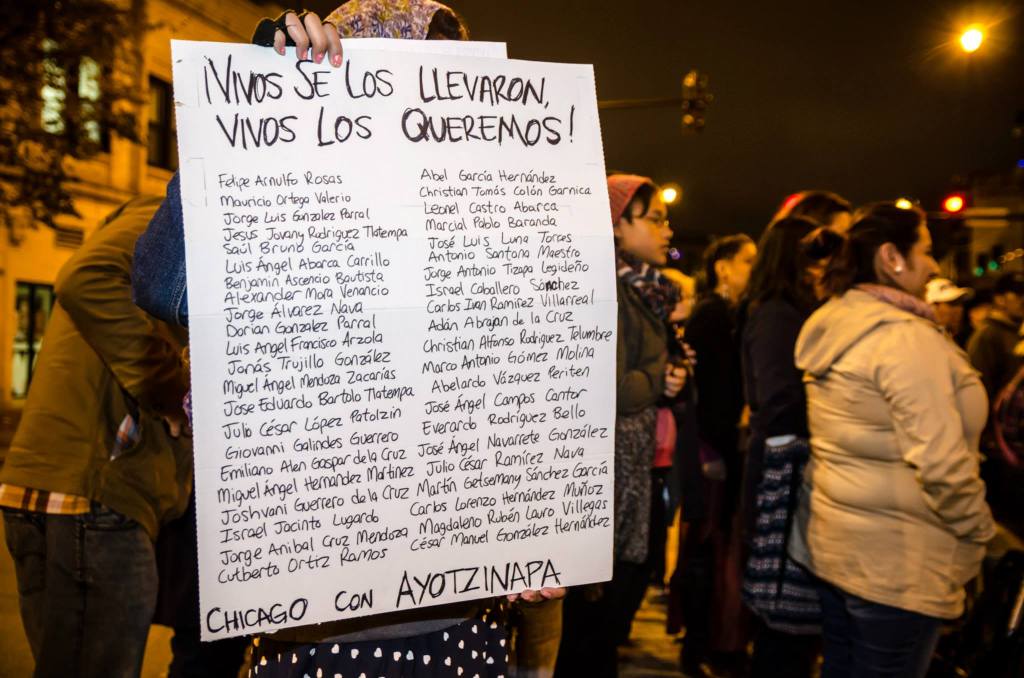 ¡VIVOS SE LOS LLEVARON,
VIVOS LOS QUEREMOS!
Felipe Arnulfo Rosas
Mauricio Ortega Valerio
Jorge Luis Gonzalez Parral
Jesus Jovany Rodriguez Tlatempa
Saúl Bruno García
Luis Ángel Abarca Carrillo
Benjamin Ascencio Bautista
Alexander Mora Venancio
Jorge Álvarez Nava
Dorian Gonzalez Parral
Luis Angel Francisco Arzola
Jonás Trujillo González
Miguel Angel Mendoza Zacarías
Jose Eduardo Bartolo Tlatempa
Julio César López Patolzin
Giovanni Galindes Guerrero
Emiliano Alen Gaspar de la Cruz
Miguel Ángel Hernandez Martinez
Joshvani Guerrero de la Cruz
Israel Jacinto Lugardo
Jorge Anibal Cruz Mendoza
Cutberto Ortiz Ramos
Abel García Hernández
Christian Tomás Colón Garnica
Leonel Castro Abarca
Marcial Pablo Baranda
José Luis Luna Torres
Antonio Santana Maestro
Jorge Antonio Tizapa Legideño
Israel Caballero Sánchez
Carlos Ivan Ramírez Villarreal
Adán Abrajan de la Cruz
Christian Alfonso Rodriguez Telumbre
Marco Antonio Gómez Molina
Abelardo Vázquez Periten
José Ángel Campos Cantor
Everardo Rodriguez Bello
José Ángel Navarrete González
Julio César Ramírez Nava
Martín Getsemany Sánchez García
Carlos Lorenzo Hernández Muñoz
Magdaleno Rubén Lauro Villegas
César Manuel González Hernández
CHICAGO CON AYOTZINAPA